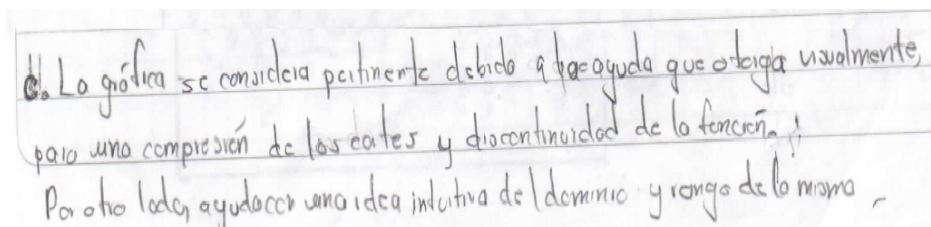 d. La gráfica se considera pertinente debido a que ayuda que otorga visualmente,
para una compresión de los cortes y discontinuidad de la función.
Por otro lado, ayuda con una idea intuitiva del dominio y rango de la misma